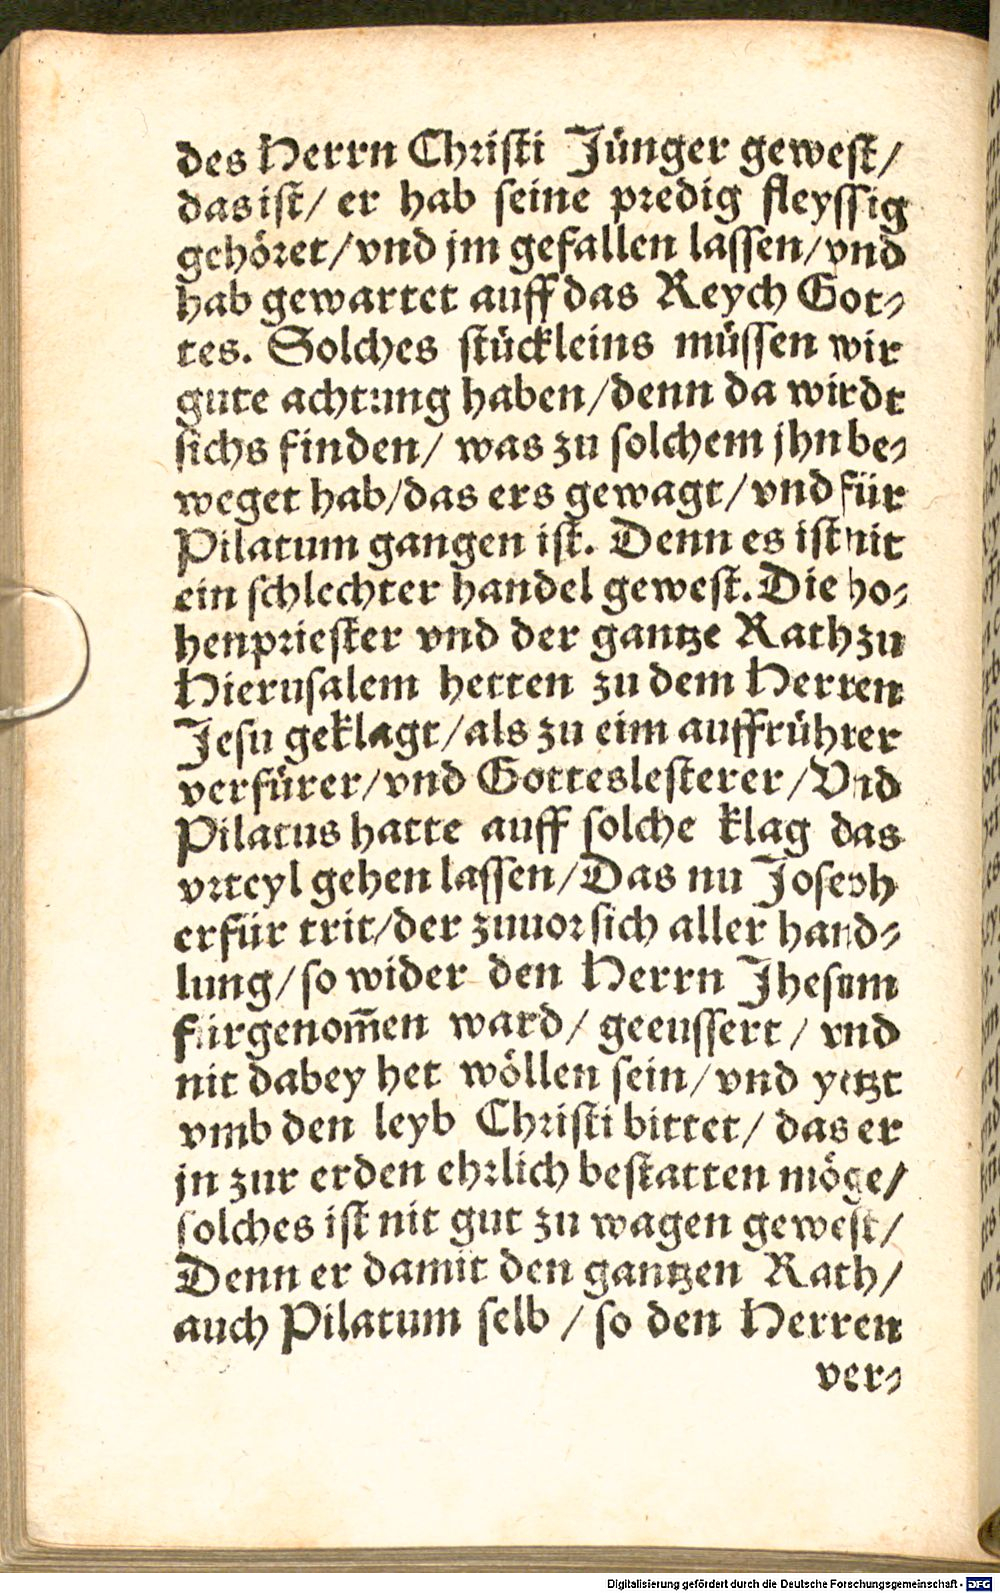 des Herrn Christi Jünger gewest/
das ist/ er hab seine predig fleyssig
gehöret/vnd jm gefallen lassen/vnd
hab gewartet auff das Reych Got-
tes. Solches stückleins müssen wir
gute achtung haben/denn da wirdt
sichs finden/ was zu solchem jhn be-
weget hab/das ers gewagt/vnd für
Pilatum gangen ist. Denn es ist nit
ein schlechter handel gewest. Die ho-
henpriester vnd der gantze Rath zu
Hierusalem hetten zu dem Herren
Jesu geklagt/als zu eim auffrührer
verfürer/vnd Gotteslesterer/Vnd
Pilatus hatte auff solche klag das
vrteyl gehen lassen/Das nu Joseph
erfür trit/der zuuor sich aller hand-
lung/so wider den Herrn Jhesum
fürgenom̃en ward/ geeussert/ vnd
nit dabey het wöllen sein/vnd yetzt
vmb den leyb Christi bittet/ das er
jn zur erden ehrlich bestatten möge/
solches ist nit gut zu wagen gewest/
Denn er damit den gantzen Rath/
auch Pilatum selb / so den Herren
ver-
Digitalisierung gefördert durch die Deutsche Forschungsgemeinschaft - DFG